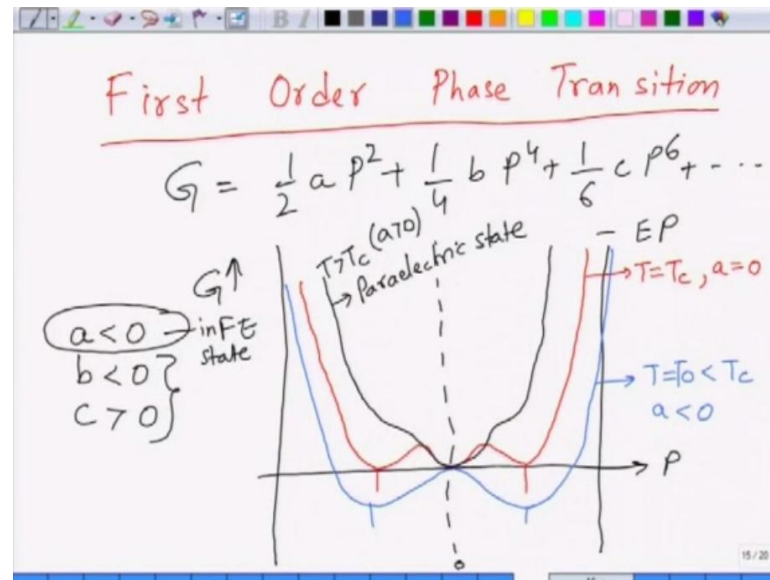 First Order Phase Transition
G = 1/2 a P² + 1/4 b P⁴ + 1/6 c P⁶ + - - -
- EP
T>Tc (a>0)
→ Paraelectric state
G↑
→ T=Tc, a=0
a<0 - in FE state
b<0
c>0
→ T=To<Tc
a<0
→ P
0
15 / 20